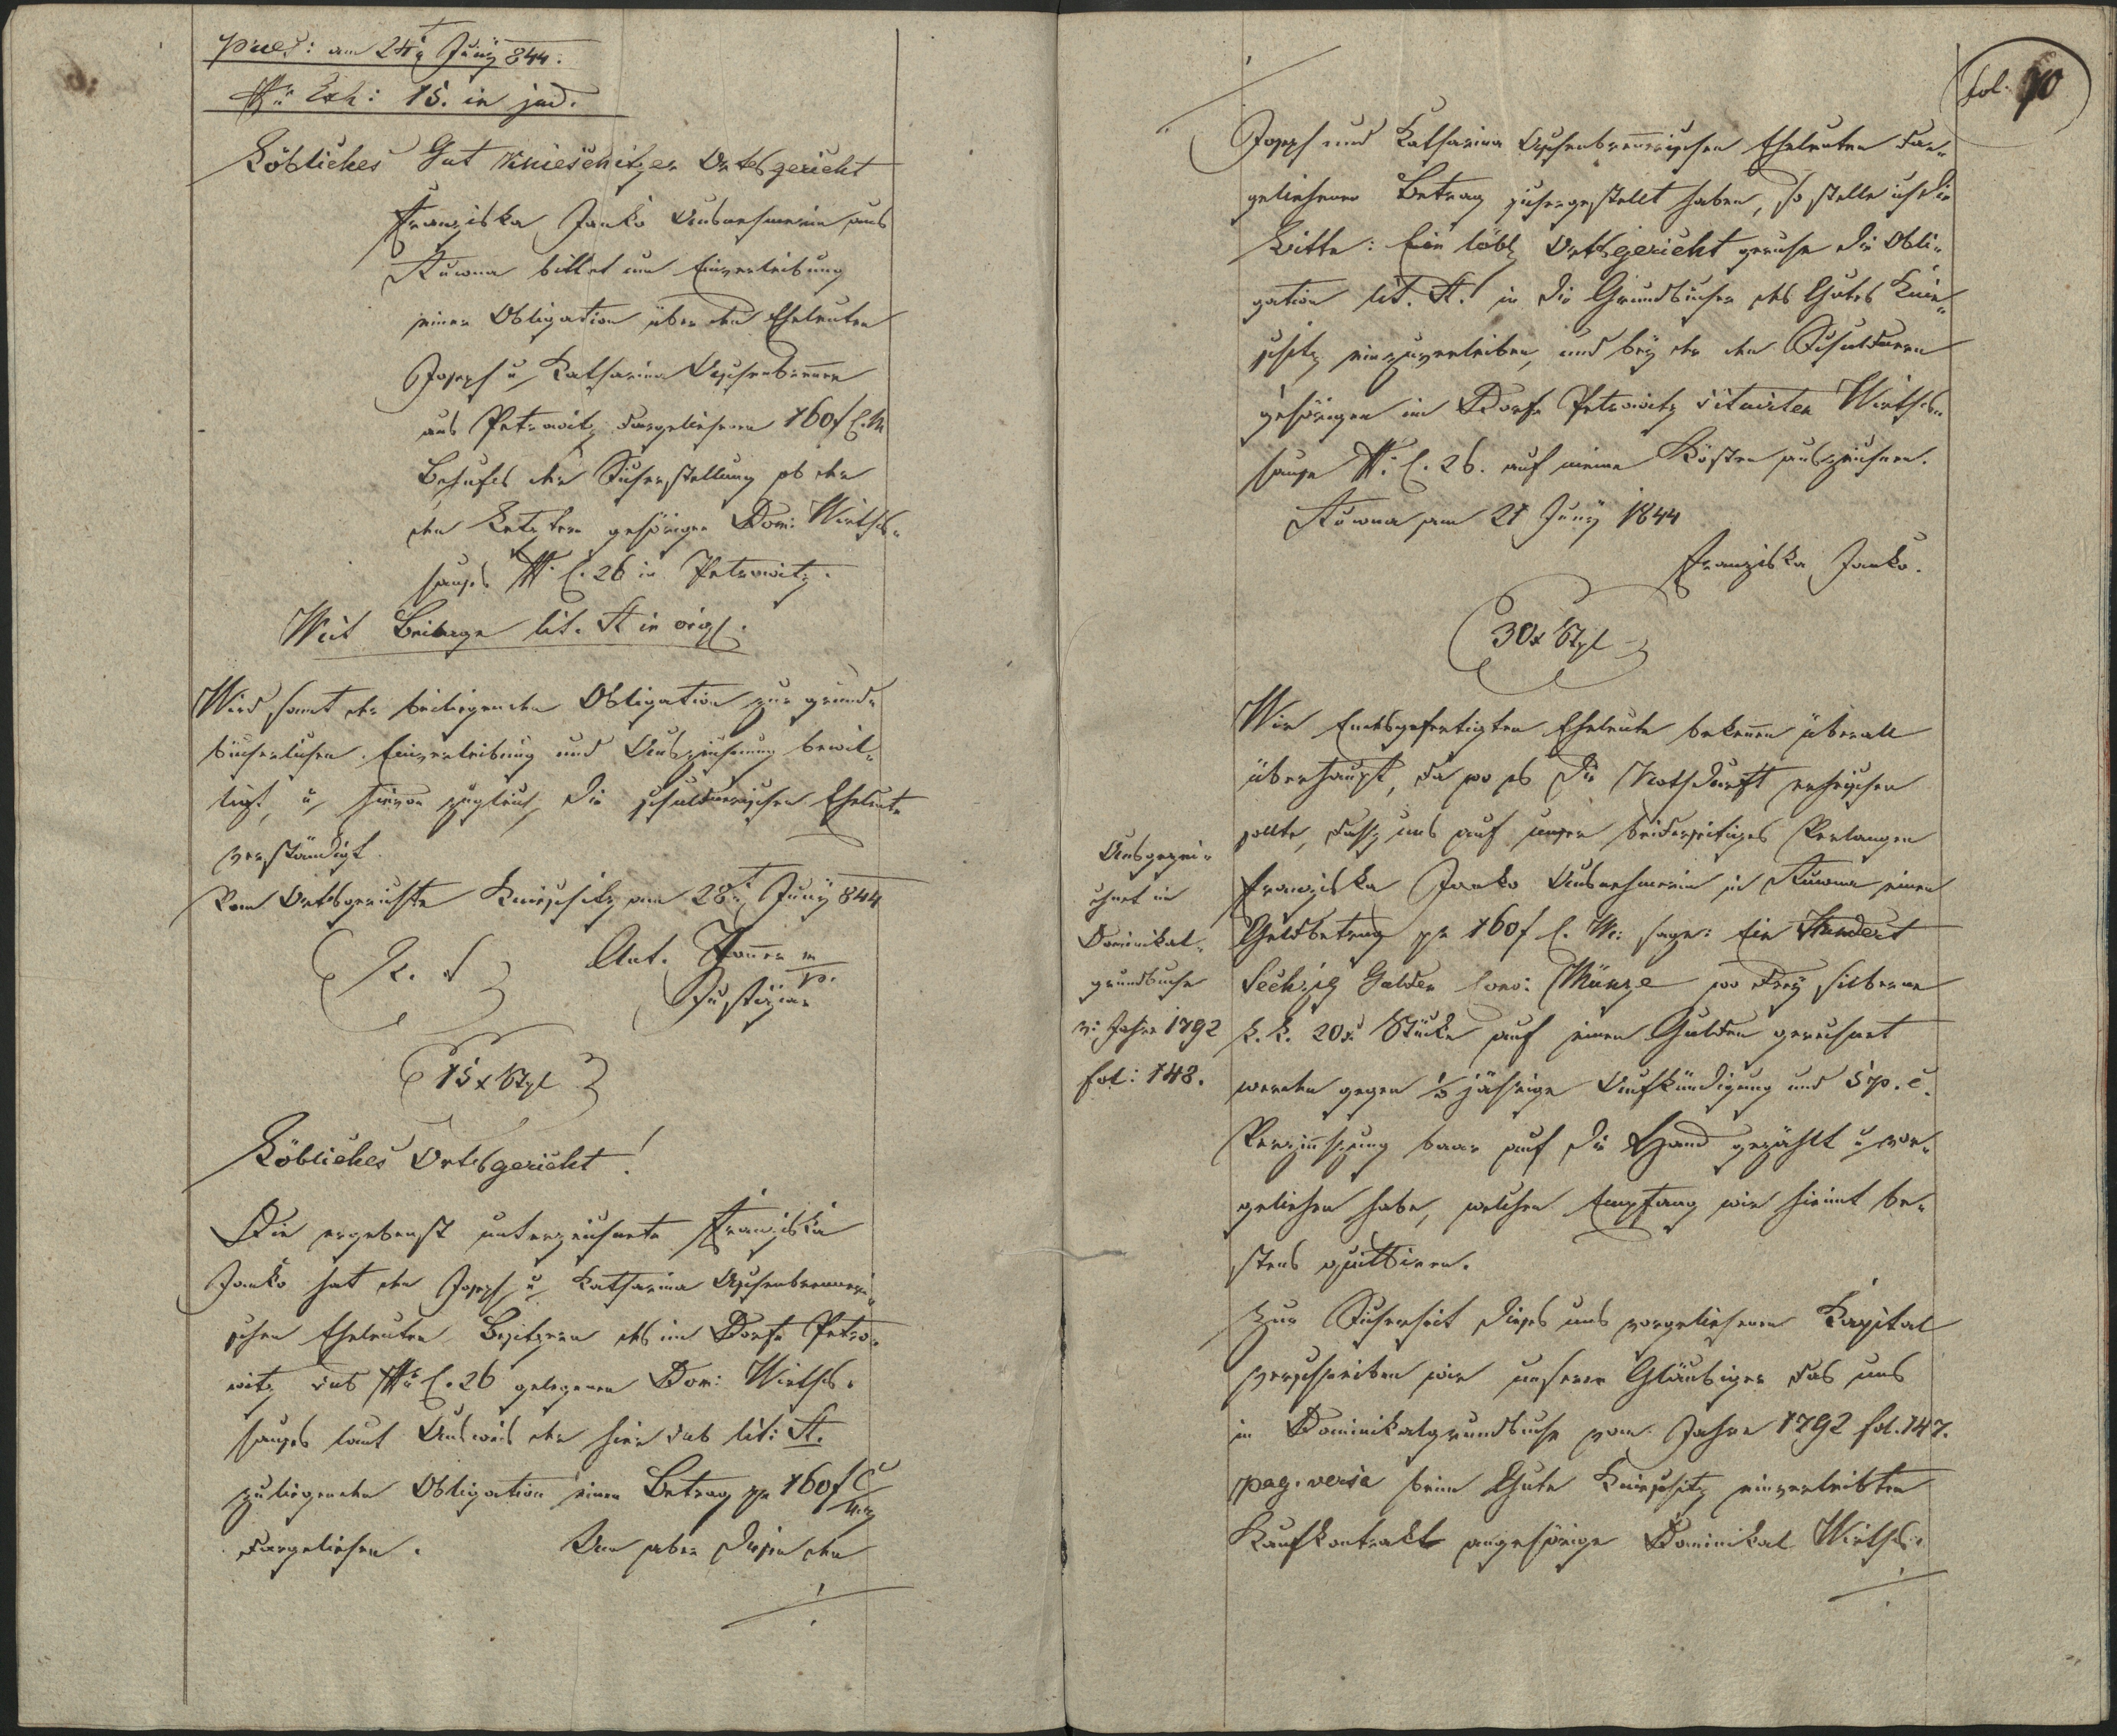 praes: am 24t Juny 844.
Nr Exh: 15. in jud.
Löbliches Gut Knieschitzer Ortsgericht
Franziska Janko Ausnehmerin aus
Kuwna bittet um Einverleibung
einer Obligation über den Eheleuten
Joseph u Katharina Aschenbrenner
aus Petrowitz dargeliehenen 160f C.M
Behufs der Sicherstellung ob der
den Letztern gehörigen Dom: Wirths„
hauses N. C. 26 in Petrowitz.
Mit Beilage lit. A in orig.
Wird samt der beiliegenden Obligation zur grund„
bücherlichen Einverleibung und Auszeichnung bewil„
ligt, u hievon zugleich die schuldnerischen Eheleute
verständigt.
Vom Ortsgerichte Knieschitz am 28t Juny 844
L. S
Ant. m
p.
Justiziar
15x Stpl
Löbliches Ortsgericht!
Die ergebenst unterzeichnete Franziska
Janko hat den Joseph u Katharina Aschenbrenneri„
schen Eheleuten Besitzern des im Dorfe Petro„
witz sub Nr C. 26 gelegenen Dom: Wirths„
hauses laut Ausweis der hier sub lit: A.
zuliegenden Obligation einen Betrag pr 160f C
Mz
dargeliehen. Um aber diesen den
./.
fol. 70
Joseph und Katharina Aschenbrennerischen Eheleuten dar„
geliehenen Betrag sichergestellt haben, so stelle ich die
Bitte: Ein löbl Ortsgericht geruhe die Obli„
gation lit. A. in die Grundbücher des Gutes Knie„
schitz einzuverleiben, und bey der den Schuldnern
gehörigen im Dorfe Petrowitz situirten Wirths„
hause N. C. 26. auf meine Kösten auszeichnen.
Kuwna am 21 Juny 1844
Franziska Janko.
30x Stpl
Wir Endesgefertigten Eheleute bekennen überall
überhaupt, da wo es die Nothdurft erheischen
sollte, daß uns auf unser beiderseitiges Verlangen
Franziska Janko Ausnehmerin in Kuwna einen
Geldbetrag pr 160f C. M. sage: Ein Hundert
Sechzig Gulden Conv: Münze wo drey silberne
k. k. 20x Stücke auf einen Gulden gerechnet
werden gegen 1/2 jährige Aufkündigung und 5 p. C.
Verzinsung baar auf die Hand gezählt u vor„
geliehen habe, welchen Empfang wir hiemit be„
stens quittiren.
Zur Sicherheit dieses uns vorgeliehenen Kapital
verschreiben wir unserer Gläubiger das uns
in Dominikalgrundbuche vom Jahre 1792 fol. 147.
pag. versa beim Gute Knieschitz einverleibten
Kaufkontrakt angehörige Dominikal Wirths„
./.
Ausgezei„
chnet im
Dominikal„
grundbuche
v: Jahre 1792
fol: 148.